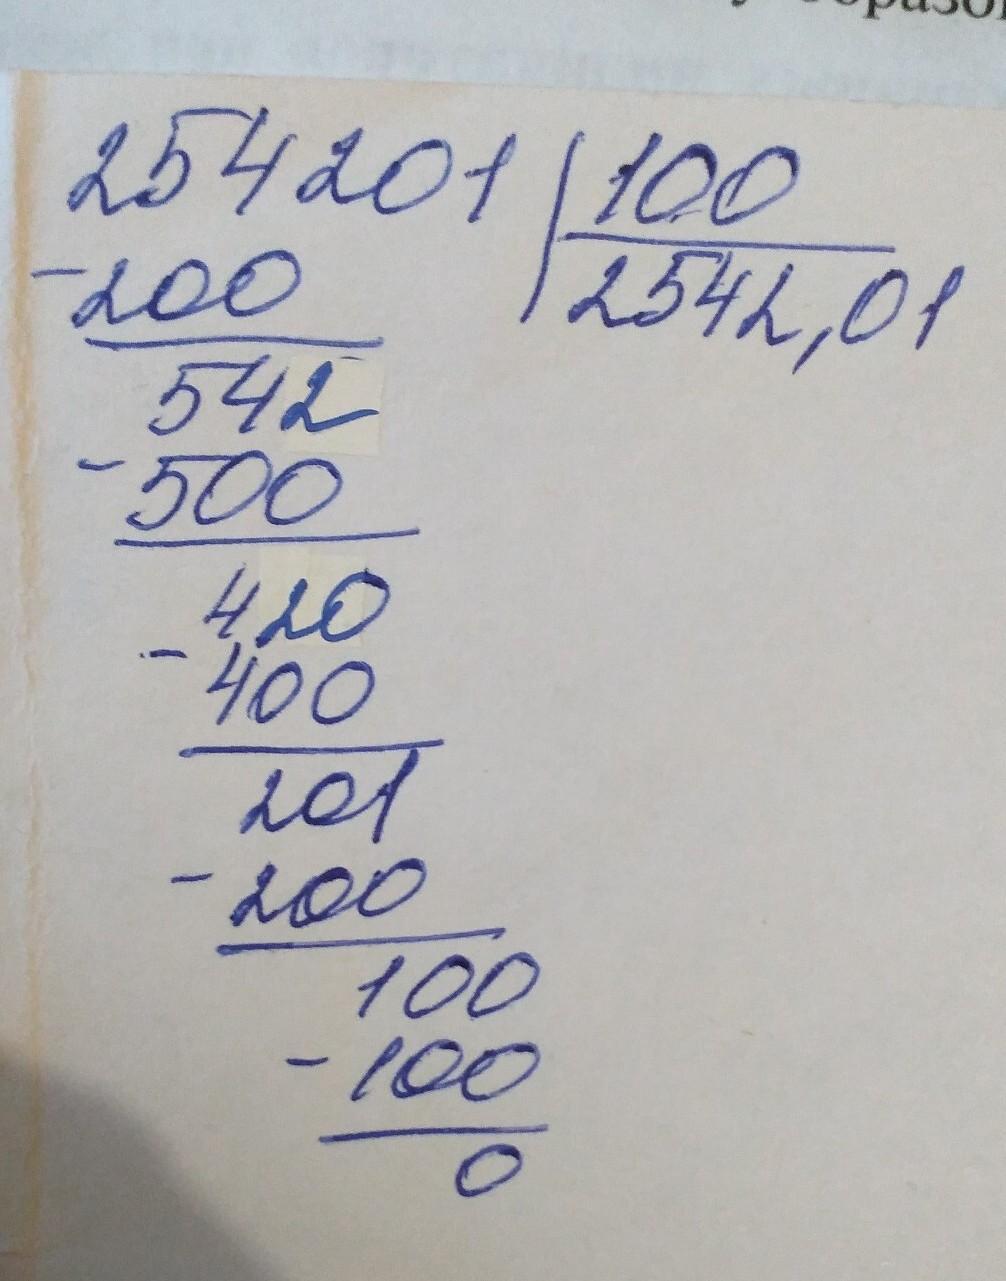 254201 100
-200 2542,01
542
-500
420
-400
201
-200
100
-100
0